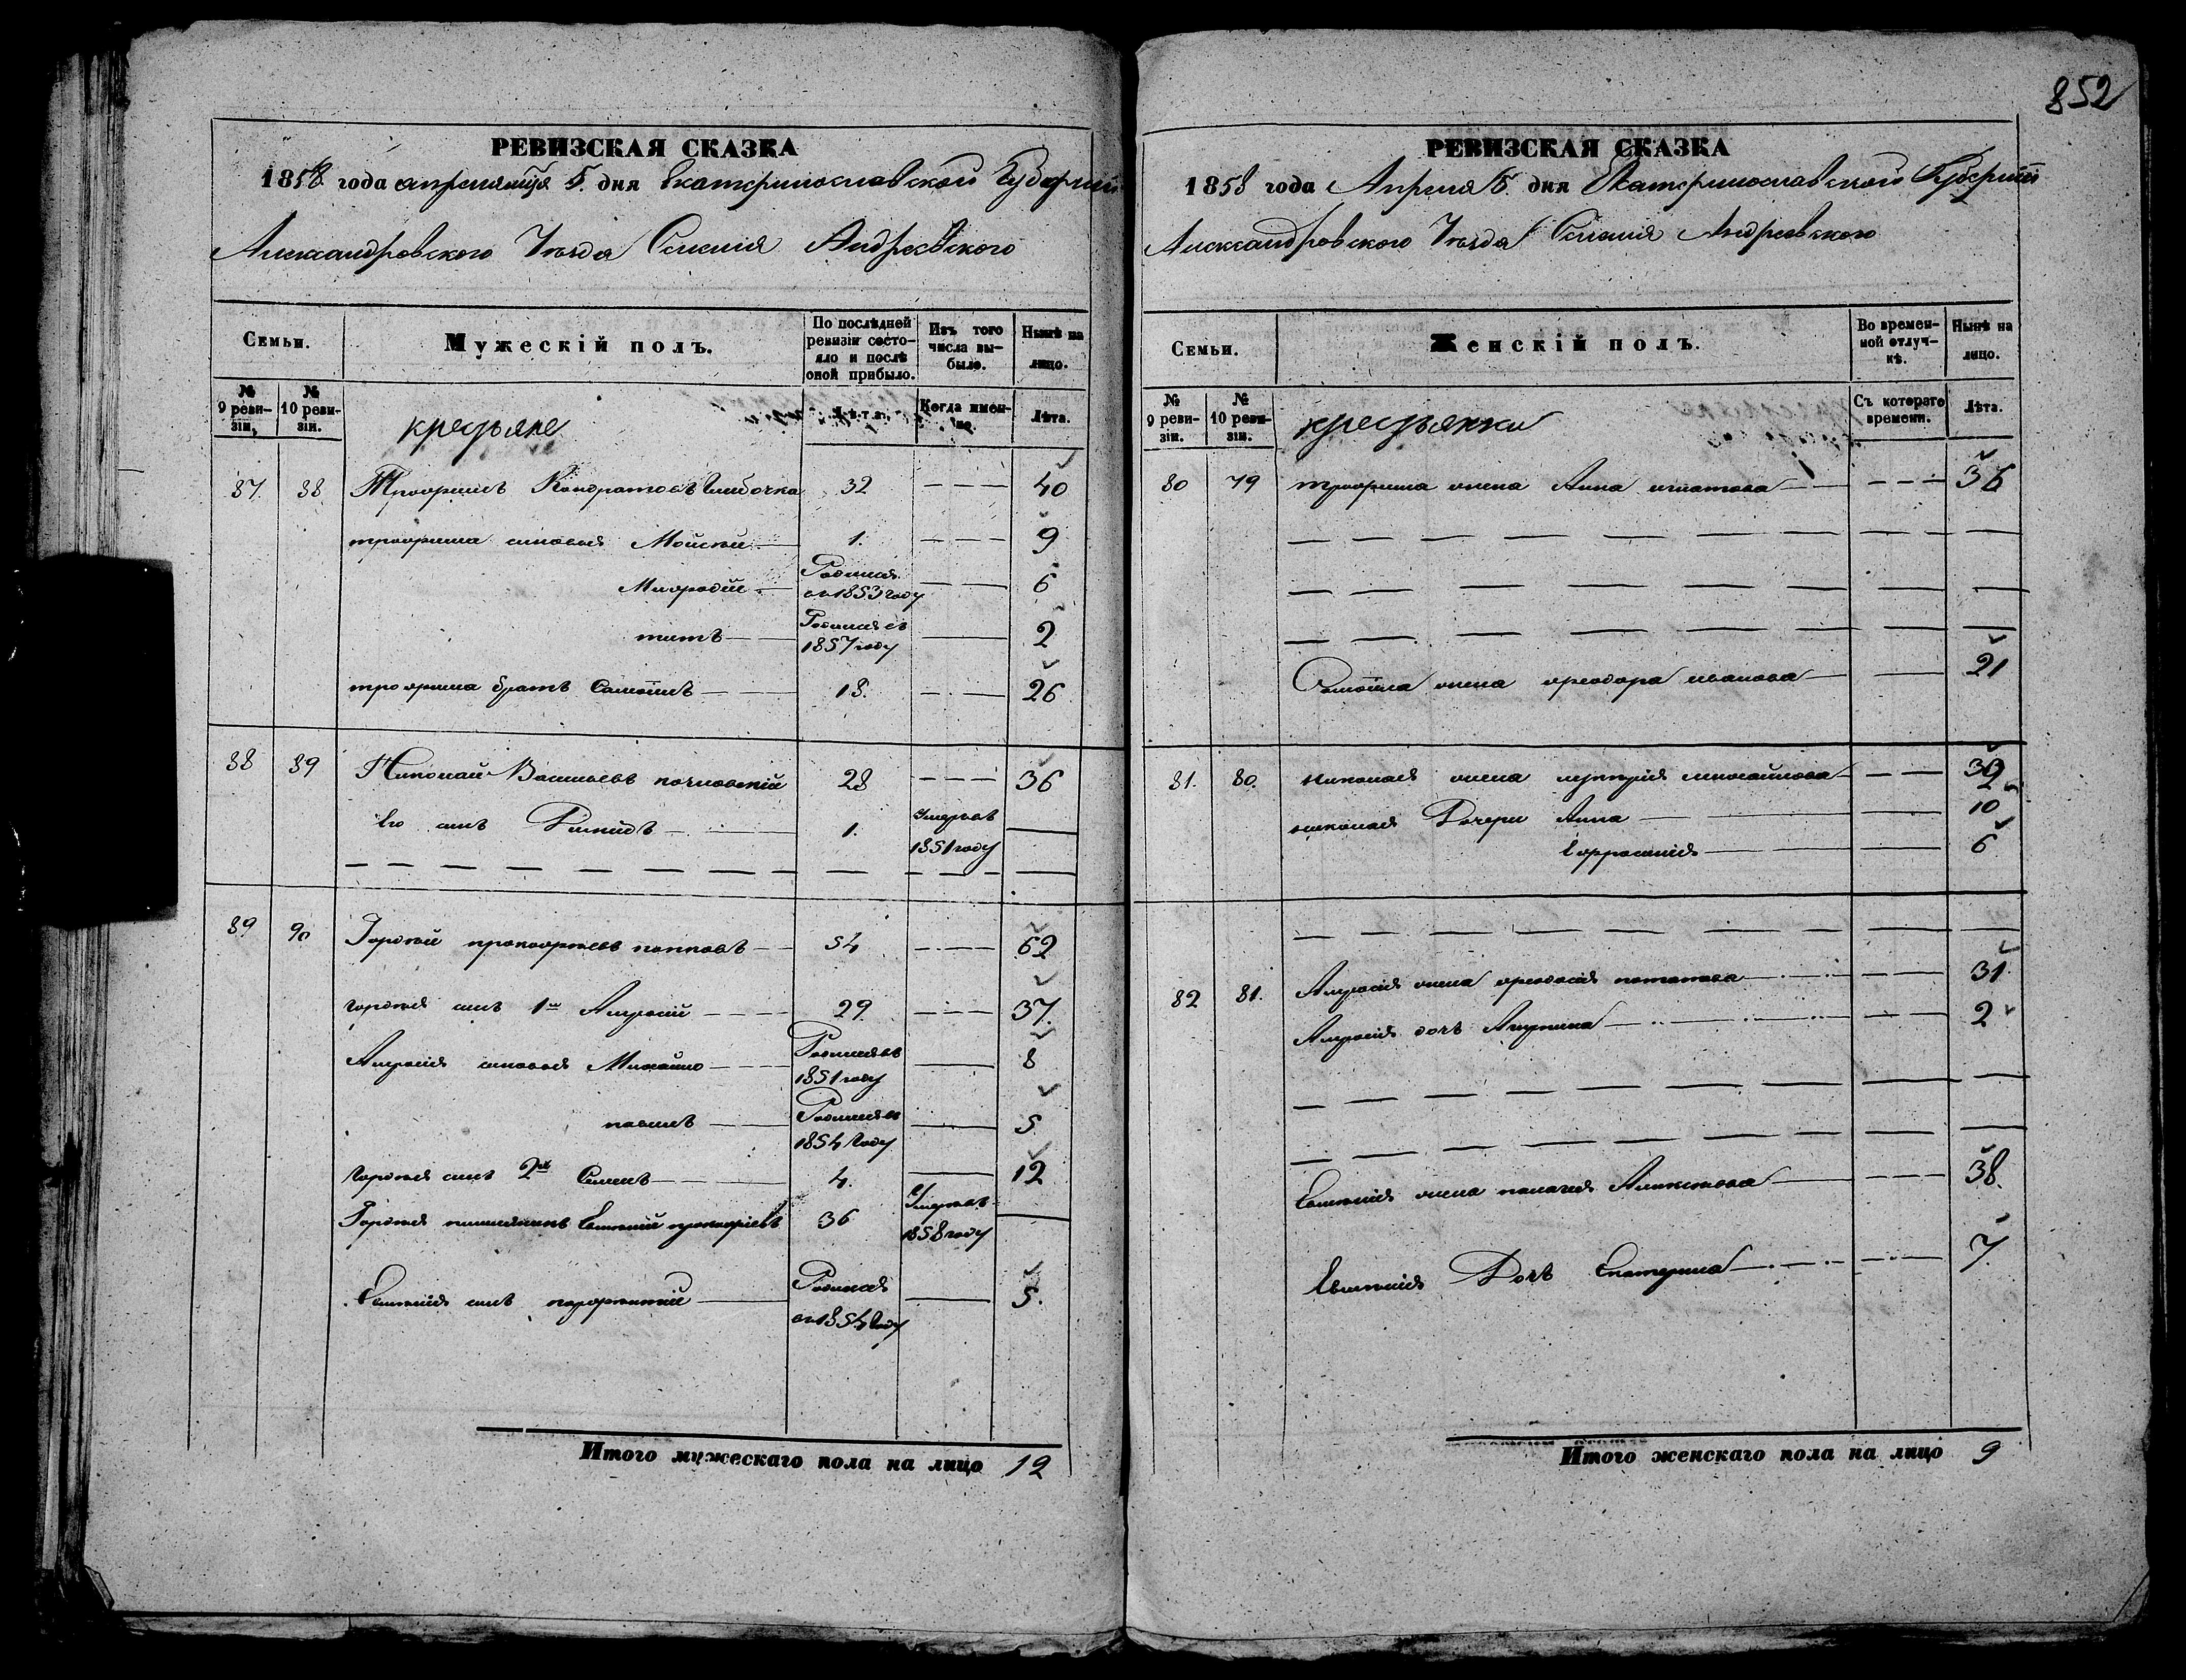 852
РЕВИЗСКАЯ СКАЗКА
1858 года апреля мця 5. дня Екатеринославской Губернии
Александровского Уезда Селения Андреевского
Семьи.
Мужескій полъ.
По послѣдней ревизіи состояло и послѣ оной прибыло.
Изъ того числа выбыло.
Нынѣ на лицо.
№ 9 ревизіи.
№ 10 ревизіи.
крестьяне
Лѣта.
Когда именно.
Лѣта.
87. 88. Трофимъ Кондратовъ 32 40
трофима сыновья Мойсей 1. 9
Мефодій Родился въ 1853 году 6
титъ Родился въ 1857 году 2
трофима братъ Самойлъ 18. 26
88 89 Николай Васильевъ 28 36
Его сынъ 1. Умеръ въ 1851 году
89 90 Гордей прокофьевъ поповъ 54 62
гордея сынъ 1й 29. 37.
сыновья Михайло Родился въ 1851 году 8
павелъ Родился въ 1854 году 5
гордея сынъ 2й Семенъ 4. 12
Гордея племянникъ Евтихій 36 Умеръ въ 1858 году
Евтихія сынъ порфирий Родился въ 1854 году 5.
Итого мужескаго пола на лицо 12
РЕВИЗСКАЯ СКАЗКА
1858 года Апреля 5. дня Екатеринославской Губернии
Александровского Уезда Селения Андреевского
Семьи.
Женскій полъ.
Во временной отлучкѣ.
Нынѣ на лицо.
№ 9 ревизіи.
№ 10 ревизіи.
крестьянки
Съ котораго времени.
Лѣта.
80 79 трофима жена Анна игнатова 36
Самойла жена феодора иванова 21
81. 80. николая жена михайлова 39
николая Дочери Анна 10
Ефросинія 6
82 81. жена феодосия потапова 31.
дочь 2
Евтихія жена пелагея 38.
Евтихія Дочь Екатерина 7.
Итого женскаго пола на лицо 9